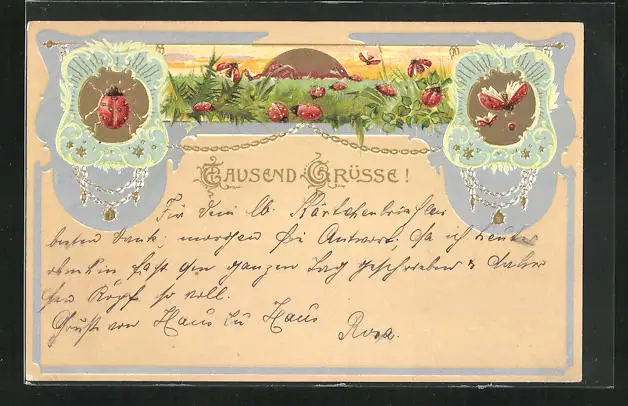 TAUSEND GRÜSSE!
Für dein lb.
besten Dank, morgen die Antwort. da ich heute
ohnehin fast den ganzen Tag geschrieben & daher
den Kopf so voll.
Grüsse von Haus zu Haus
Rosa.